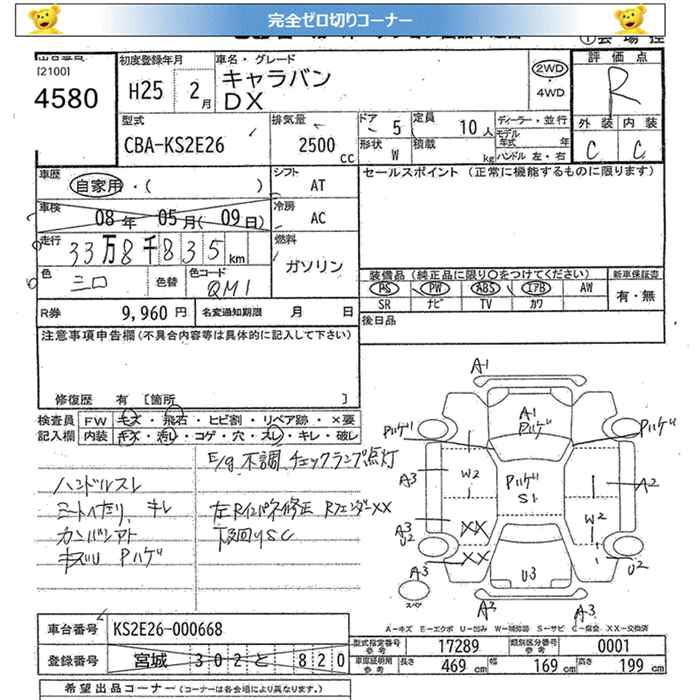 完全ゼロ切りコーナー
[2100]
4580
初度登録年月
H25 2月
車名・グレード
キャラバン
DX
2WD
・4WD
評価点
R
型式
CBA-KS2E26
排気量
2500 cc
ドア 5
形状 W
定員 10人
積載 kg
ディーラー・並行
モデル年式 年
ハンドル 左・右
外装 内装
C C
車歴
自家用・( )
シフト AT
車検
08年 05月(09日)
冷房 AC
走行
33万8千835km
燃料 ガソリン
色 色替 色コード
シロ QM1
R券 9,960円
名変通知期限 月 日
セールスポイント (正常に機能するものに限ります)
装備品(純正品に限り○をつけてください) 新車保証書
PS PW ABS エアB AW
SR ナビ TV カワ
有・無
後日品
注意事項申告欄(不具合内容等は具体的に記入して下さい)
修復歴 有 [箇所 ]
検査員 FW キズ・飛石・ヒビ割・リペア跡・×要
記入欄 内装 キズ・汚レ・コゲ・穴・スレ・キレ・破レ
E/g不調 チェックランプ点灯
ハンドルスレ
シートイタミ、キレ
カンバンアト
キズU Pハゲ
左Rインパネ修正 RフェンダーXX
下回りSC
A1
A1
Pハゲ
Pハゲ Pハゲ
W2
Pハゲ
S1
A3 A2
W2
A3
U2
XX
XX
A3
U3
U2
スペア
A2 A3
A-キズ E-エクボ U-凹み W-補修跡 S-サビ C-腐食 XX-交換済
車台番号 KS2E26-000668
登録番号 宮城 302 と 820
型式指定番号 参考 17289
類別区分番号 参考 0001
車庫証明用 参考 長さ 469cm 幅 169cm 高さ 199cm
希望出品コーナー (コーナーは各会場により異なります。)